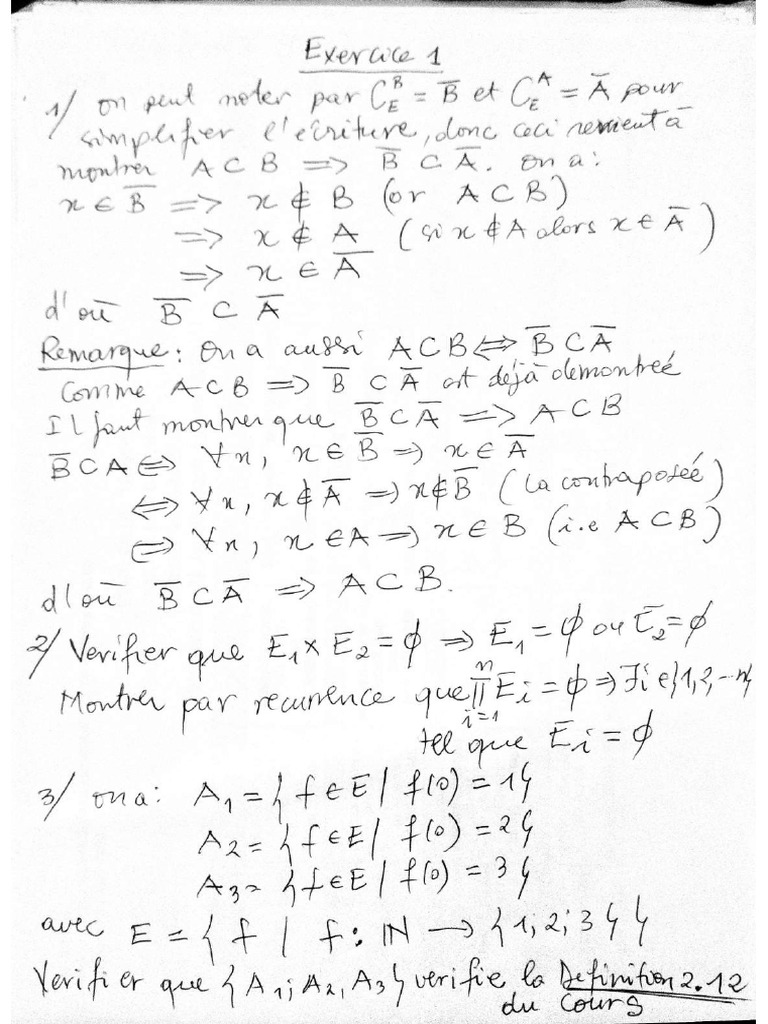 Exercice 1
1/ on peut noter par C_E^B = B̅ et C_E^A = A̅ pour
simplifier l'écriture, donc ceci revient à
montrer A ⊂ B ⟹ B̅ ⊂ A̅. on a:
x ∈ B̅ ⟹ x ∉ B (or A ⊂ B)
⟹ x ∉ A (si x ∉ A alors x ∈ A̅)
⟹ x ∈ A̅
d'où B̅ ⊂ A̅
Remarque: On a aussi A ⊂ B ⟺ B̅ ⊂ A̅
Comme A ⊂ B ⟹ B̅ ⊂ A̅ est déjà demontreé
Il faut montrer que B̅ ⊂ A̅ ⟹ A ⊂ B
B̅ ⊂ A ⟺ ∀x, x ∈ B̅ ⟹ x ∈ A̅
⟺ ∀x, x ∉ A̅ ⟹ x ∉ B̅ (la contraposeé)
⟺ ∀x, x ∈ A ⟹ x ∈ B (i.e A ⊂ B)
d'où B̅ ⊂ A̅ ⟹ A ⊂ B.
2/ Verifier que E₁ × E₂ = ∅ ⟹ E₁ = ∅ ou E₂ = ∅
Montrer par recurrence que ∏_{i=1}^n E_i = ∅ ⟹ ∃i ∈ {1, 2, --n}
tel que E_i = ∅
3/ on a: A₁ = { f ∈ E / f(0) = 1}
A₂ = { f ∈ E / f(0) = 2}
A₃ = { f ∈ E / f(0) = 3}
avec E = { f / f: ℕ ⟶ {1; 2; 3}}
Verifier que {A₁; A₂, A₃} verifie la Definition 2.12
du Cours